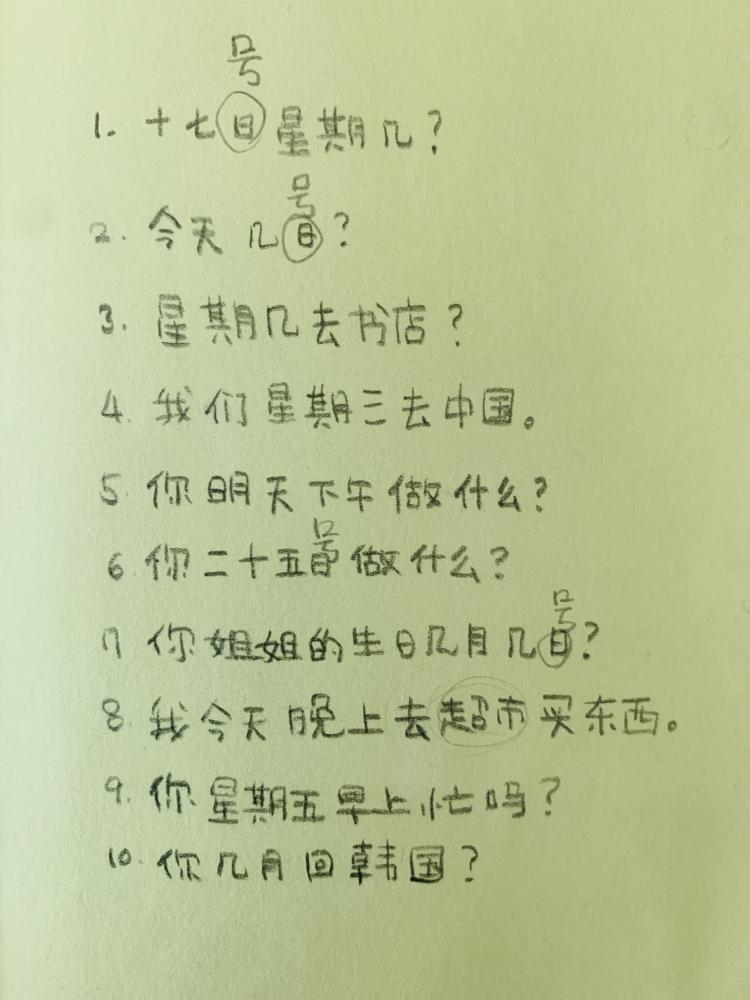 号
1. 十七日星期几?
号
2. 今天几日?
3. 星期几去书店?
4. 我们星期三去中国。
5 你明天下午做什么?
号
6 你二十五日做什么?
号
7 你姐姐的生日几月几日?
8 我今天晚上去超市买东西。
9. 你星期五早上忙吗?
10. 你几月回韩国?